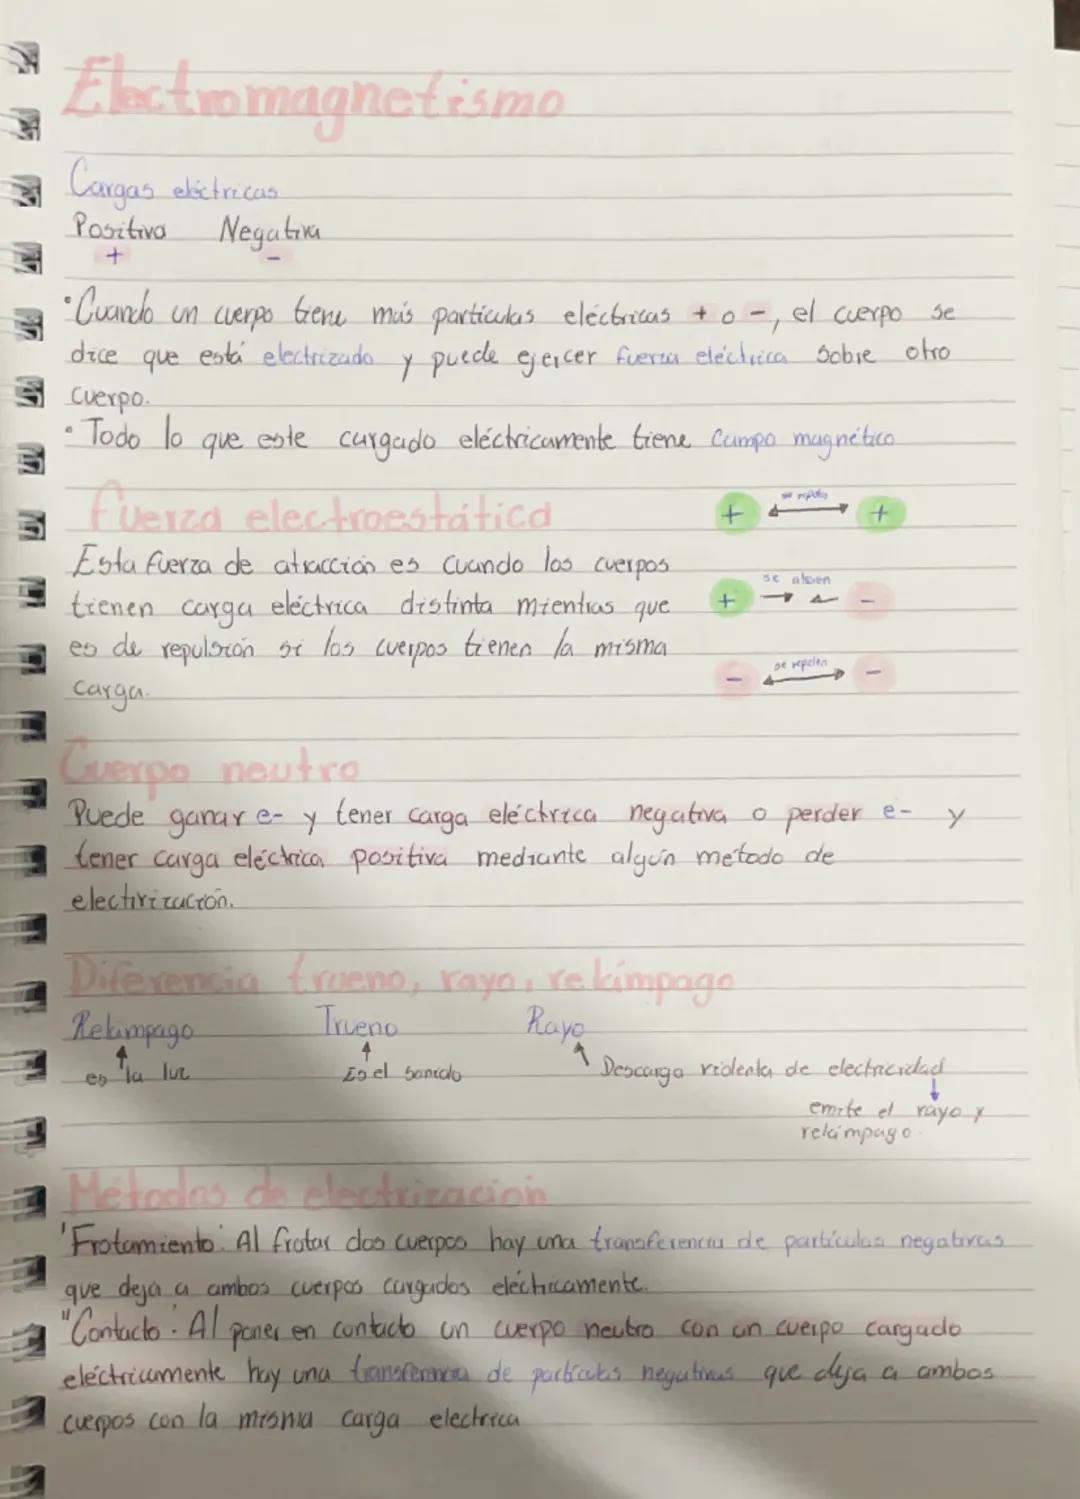 Electromagnetismo
Cargas eléctricas
Positiva Negativa
+ -
•Cuando un cuerpo tiene más particulas eléctricas + o -, el cuerpo se
dice que está electrizado y puede ejercer fuerza eléctrica sobre otro
cuerpo.
• Todo lo que este cargado eléctricamente tiene Campo magnético
fuerza electroestática
+ se repelen +
Esta fuerza de atracción es cuando los cuerpos
tienen carga eléctrica distinta mientras que
+ se atraen -
es de repulsión si los cuerpos tienen la misma
- se repelen -
carga.
Cuerpo neutro
Puede ganar e- y tener carga eléctrica negativa o perder e- y
tener carga eléctrica positiva mediante algún método de
electrización.
Diferencia trueno, rayo, relámpago
Relámpago Trueno Rayo
es la luz Es el sonido Descarga violenta de electricidad
emite el rayo y
relámpago.
Métodos de electrización
'Frotamiento: Al frotar dos cuerpos hay una transferencia de partículas negativas
que deja a ambos cuerpos cargados eléctricamente.
"Contacto: Al poner en contacto un cuerpo neutro con un cuerpo cargado
eléctricamente hay una transferencia de partículas negativas que deja a ambos
cuerpos con la misma carga electrica